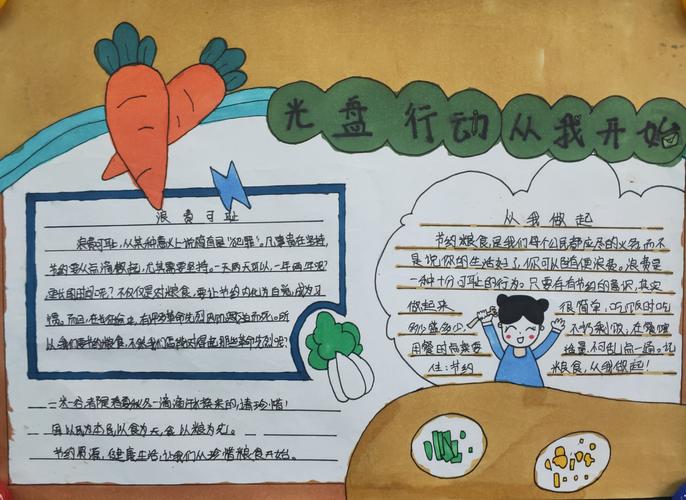 光盘行动从我开始
浪费可耻
浪费可耻,从某种意义上说简直是"犯罪"。凡事贵在坚持,
节约要从点滴做起,尤其需要坚持。一天两天可以,一年两年呢?
更长的时间呢?不仅仅是对粮食,要让节约内化为自觉,成为习
惯。而且,在长征途中,有许多革命先烈因饥饿而死。所
以我们要节约粮食,不然我们怎能对得起那些革命先烈呢?
一米一谷都是一滴滴汗水换来的,请珍惜!
国以民为本,民以食为天,食以粮为先。
节约资源,健康生活,让我们从珍惜粮食开始。
从我做起
节约粮食是我们每个公民都应尽的义务,而不
是说,你的生活好了,你可以随便浪费。浪费是
一种十分可耻的行为。只要存有节约的意识,其实
做起来 很简单,吃饭时吃
多少盛多少, 不扔剩饭,在餐馆
用餐时点菜要 适量,不乱点一通。记
住:节约 粮食,从我做起!